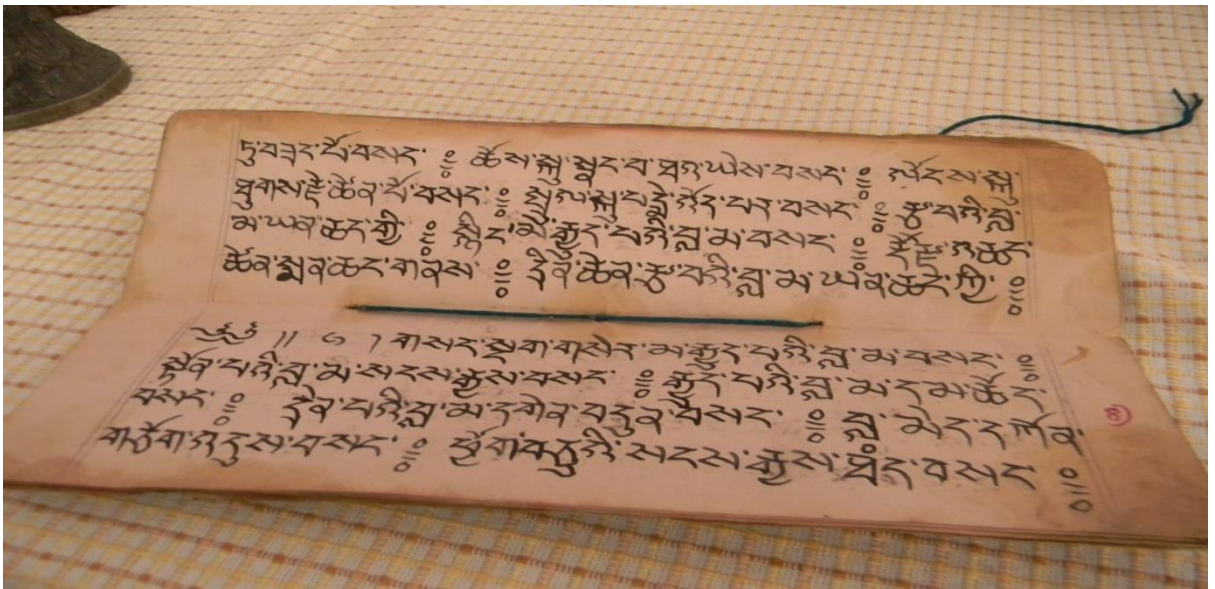 ཏུ་བཟང་པོ་བསང་ ༔ ཆོས་སྐུ་སྣང་བ་ཡས་བསང་ ༔ ལོངས་སྐུ་
ཐུགས་རྗེ་ཆེན་པོ་བསང་ ༔ སྤྲུལ་སྐུ་བསང་ ༔ རྩ་བའི་བླ་
མ་ཡན་ཆད་ཀྱི་ ༔ རྒྱུད་པའི་བླ་མ་བསང་ ༔ རྡོ་རྗེ་འཆང་
ཆེན་མན་ཆད་གནས་ ༔ དྲིན་ཆེན་རྩ་བའི་བླ་མ་ཡན་ཆོད་ཀྱི་ ༔
༄༅།། གསང་སྔག་གསེར་མ་རྒྱུད་པའི་བླ་མ་བསང་ ༔
སྟོན་པའི་བླ་མ་སངས་རྒྱས་བསང་ ༔ རྒྱུད་པའི་བླ་མ་ད་མ་ཆོད་
བསང་ ༔ དྲིན་པའི་བླ་མ་དགེན་བདུན་བསང་ ༔ བླ་མེད་དཀོན་
གཅོག་འདུས་བསང་ ༔ ཕྱོག་བཅུའི་སངས་རྒྱས་བསང་ ༔